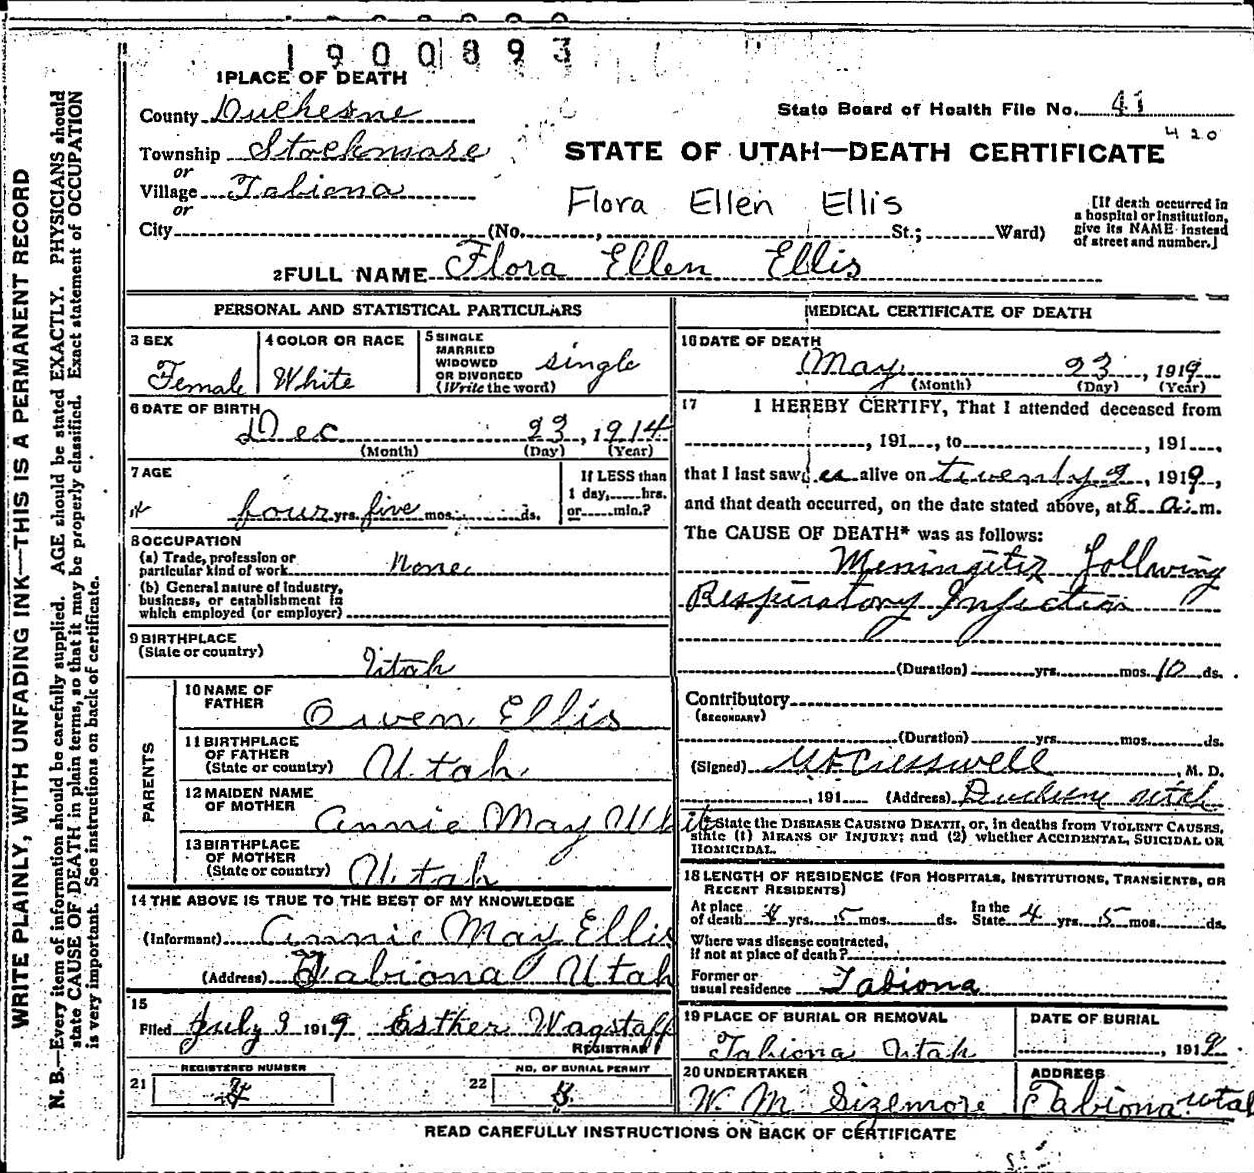 1900893
1 PLACE OF DEATH
County Duchesne
State Board of Health File No. 41
420
Township Stockmore
or
STATE OF UTAH—DEATH CERTIFICATE
Village Tabiona
or
Flora Ellen Ellis
[If death occurred in
a hospital or institution,
give its NAME instead
of street and number.]
City (No. , St.; Ward)
2 FULL NAME Flora Ellen Ellis
PERSONAL AND STATISTICAL PARTICULARS
3 SEX
Female
4 COLOR OR RACE
White
5 SINGLE
MARRIED
WIDOWED
OR DIVORCED
(Write the word)
single
6 DATE OF BIRTH
Dec 23, 1914
(Month) (Day) (Year)
7 AGE
four yrs. five mos. ds.
If LESS than
1 day, hrs.
or min.?
8 OCCUPATION
(a) Trade, profession or
particular kind of work None
(b) General nature of industry,
business, or establishment in
which employed (or employer)
9 BIRTHPLACE
(State or country)
Utah
PARENTS
10 NAME OF
FATHER
Owen Ellis
11 BIRTHPLACE
OF FATHER
(State or country) Utah
12 MAIDEN NAME
OF MOTHER
Annie May
13 BIRTHPLACE
OF MOTHER
(State or country) Utah
14 THE ABOVE IS TRUE TO THE BEST OF MY KNOWLEDGE
(Informant) Annie May Ellis
(Address) Tabiona Utah
15
Filed July 9 1919 Esther Wagstaff
REGISTRAR
REGISTERED NUMBER
21
NO. OF BURIAL PERMIT
22
MEDICAL CERTIFICATE OF DEATH
16 DATE OF DEATH
May 23, 1919
(Month) (Day) (Year)
17 I HEREBY CERTIFY, That I attended deceased from
, 191 , to , 191 ,
that I last saw er alive on twenty 2, 1919,
and that death occurred, on the date stated above, at 8 a. m.
The CAUSE OF DEATH* was as follows:
Meningitis follwing
Respiratory Infection
(Duration) yrs. mos. 10 ds.
Contributory
(SECONDARY)
(Duration) yrs. mos. ds.
(Signed) Cresswell, M. D.
, 191 (Address) Duchesne Utah
*State the DISEASE CAUSING DEATH, or, in deaths from VIOLENT CAUSES,
state (1) MEANS OF INJURY; and (2) whether ACCIDENTAL, SUICIDAL OR
HOMICIDAL.
18 LENGTH OF RESIDENCE (FOR HOSPITALS, INSTITUTIONS, TRANSIENTS, OR
RECENT RESIDENTS)
At place
of death 4 yrs. 5 mos. ds. In the
State 4 yrs. 5 mos. ds.
Where was disease contracted,
if not at place of death?
Former or
usual residence Tabiona
19 PLACE OF BURIAL OR REMOVAL
Tabiona Utah
DATE OF BURIAL
, 1919
20 UNDERTAKER
W. M. Sizemore
ADDRESS
Tabiona Utah
READ CAREFULLY INSTRUCTIONS ON BACK OF CERTIFICATE
WRITE PLAINLY, WITH UNFADING INK—THIS IS A PERMANENT RECORD
N. B.—Every item of information should be carefully supplied. AGE should be stated EXACTLY. PHYSICIANS should
state CAUSE OF DEATH in plain terms, so that it may be properly classified. Exact statement of OCCUPATION
is very important. See instructions on back of certificate.